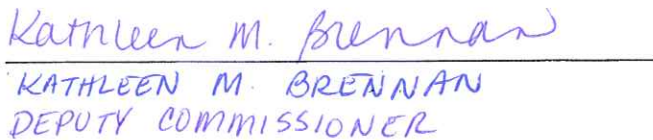 Kathleen M. Brennan
KATHLEEN M. BRENNAN
DEPUTY COMMISSIONER